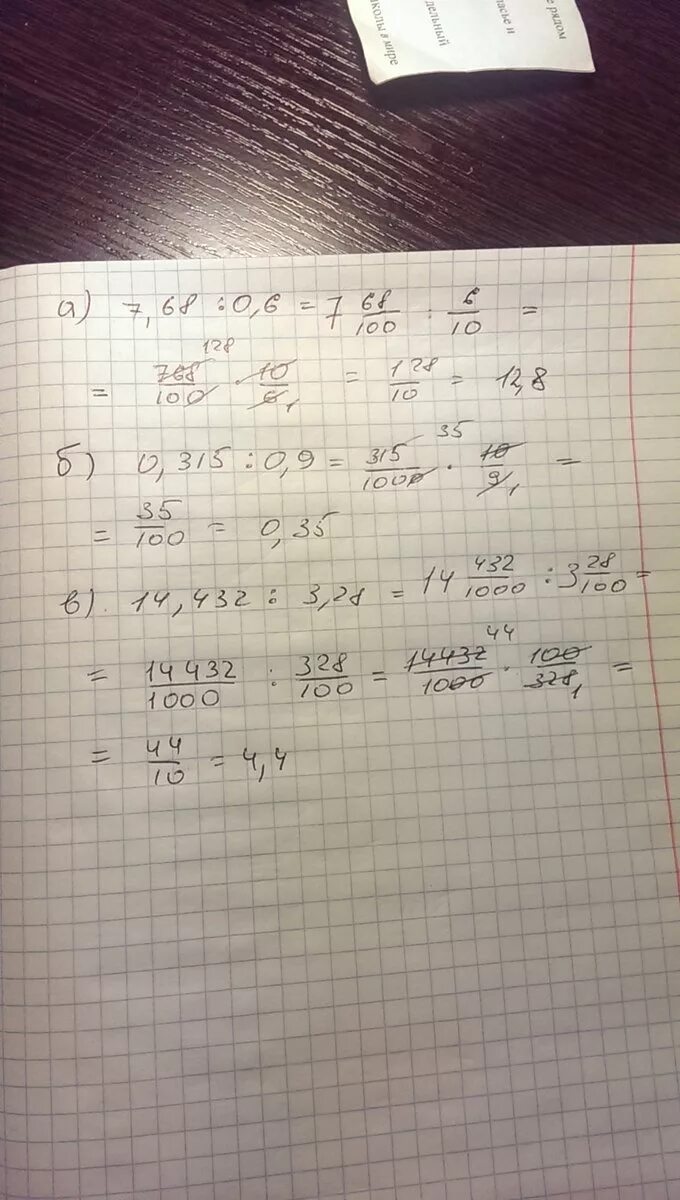 е рядом
ласье и
дельный
школы в мире
а) 7,68 : 0,6 = 7 68/100 : 6/10 =
= 768/100 128 · 10/6 1 = 128/10 = 12,8
б) 0,315 : 0,9 = 315/1000 35 · 10/9 1 =
= 35/100 = 0,35
в). 14,432 : 3,28 = 14 432/1000 : 3 28/100 =
= 14432/1000 : 328/100 = 14432/1000 44 · 100/328 1 =
= 44/10 = 4,4